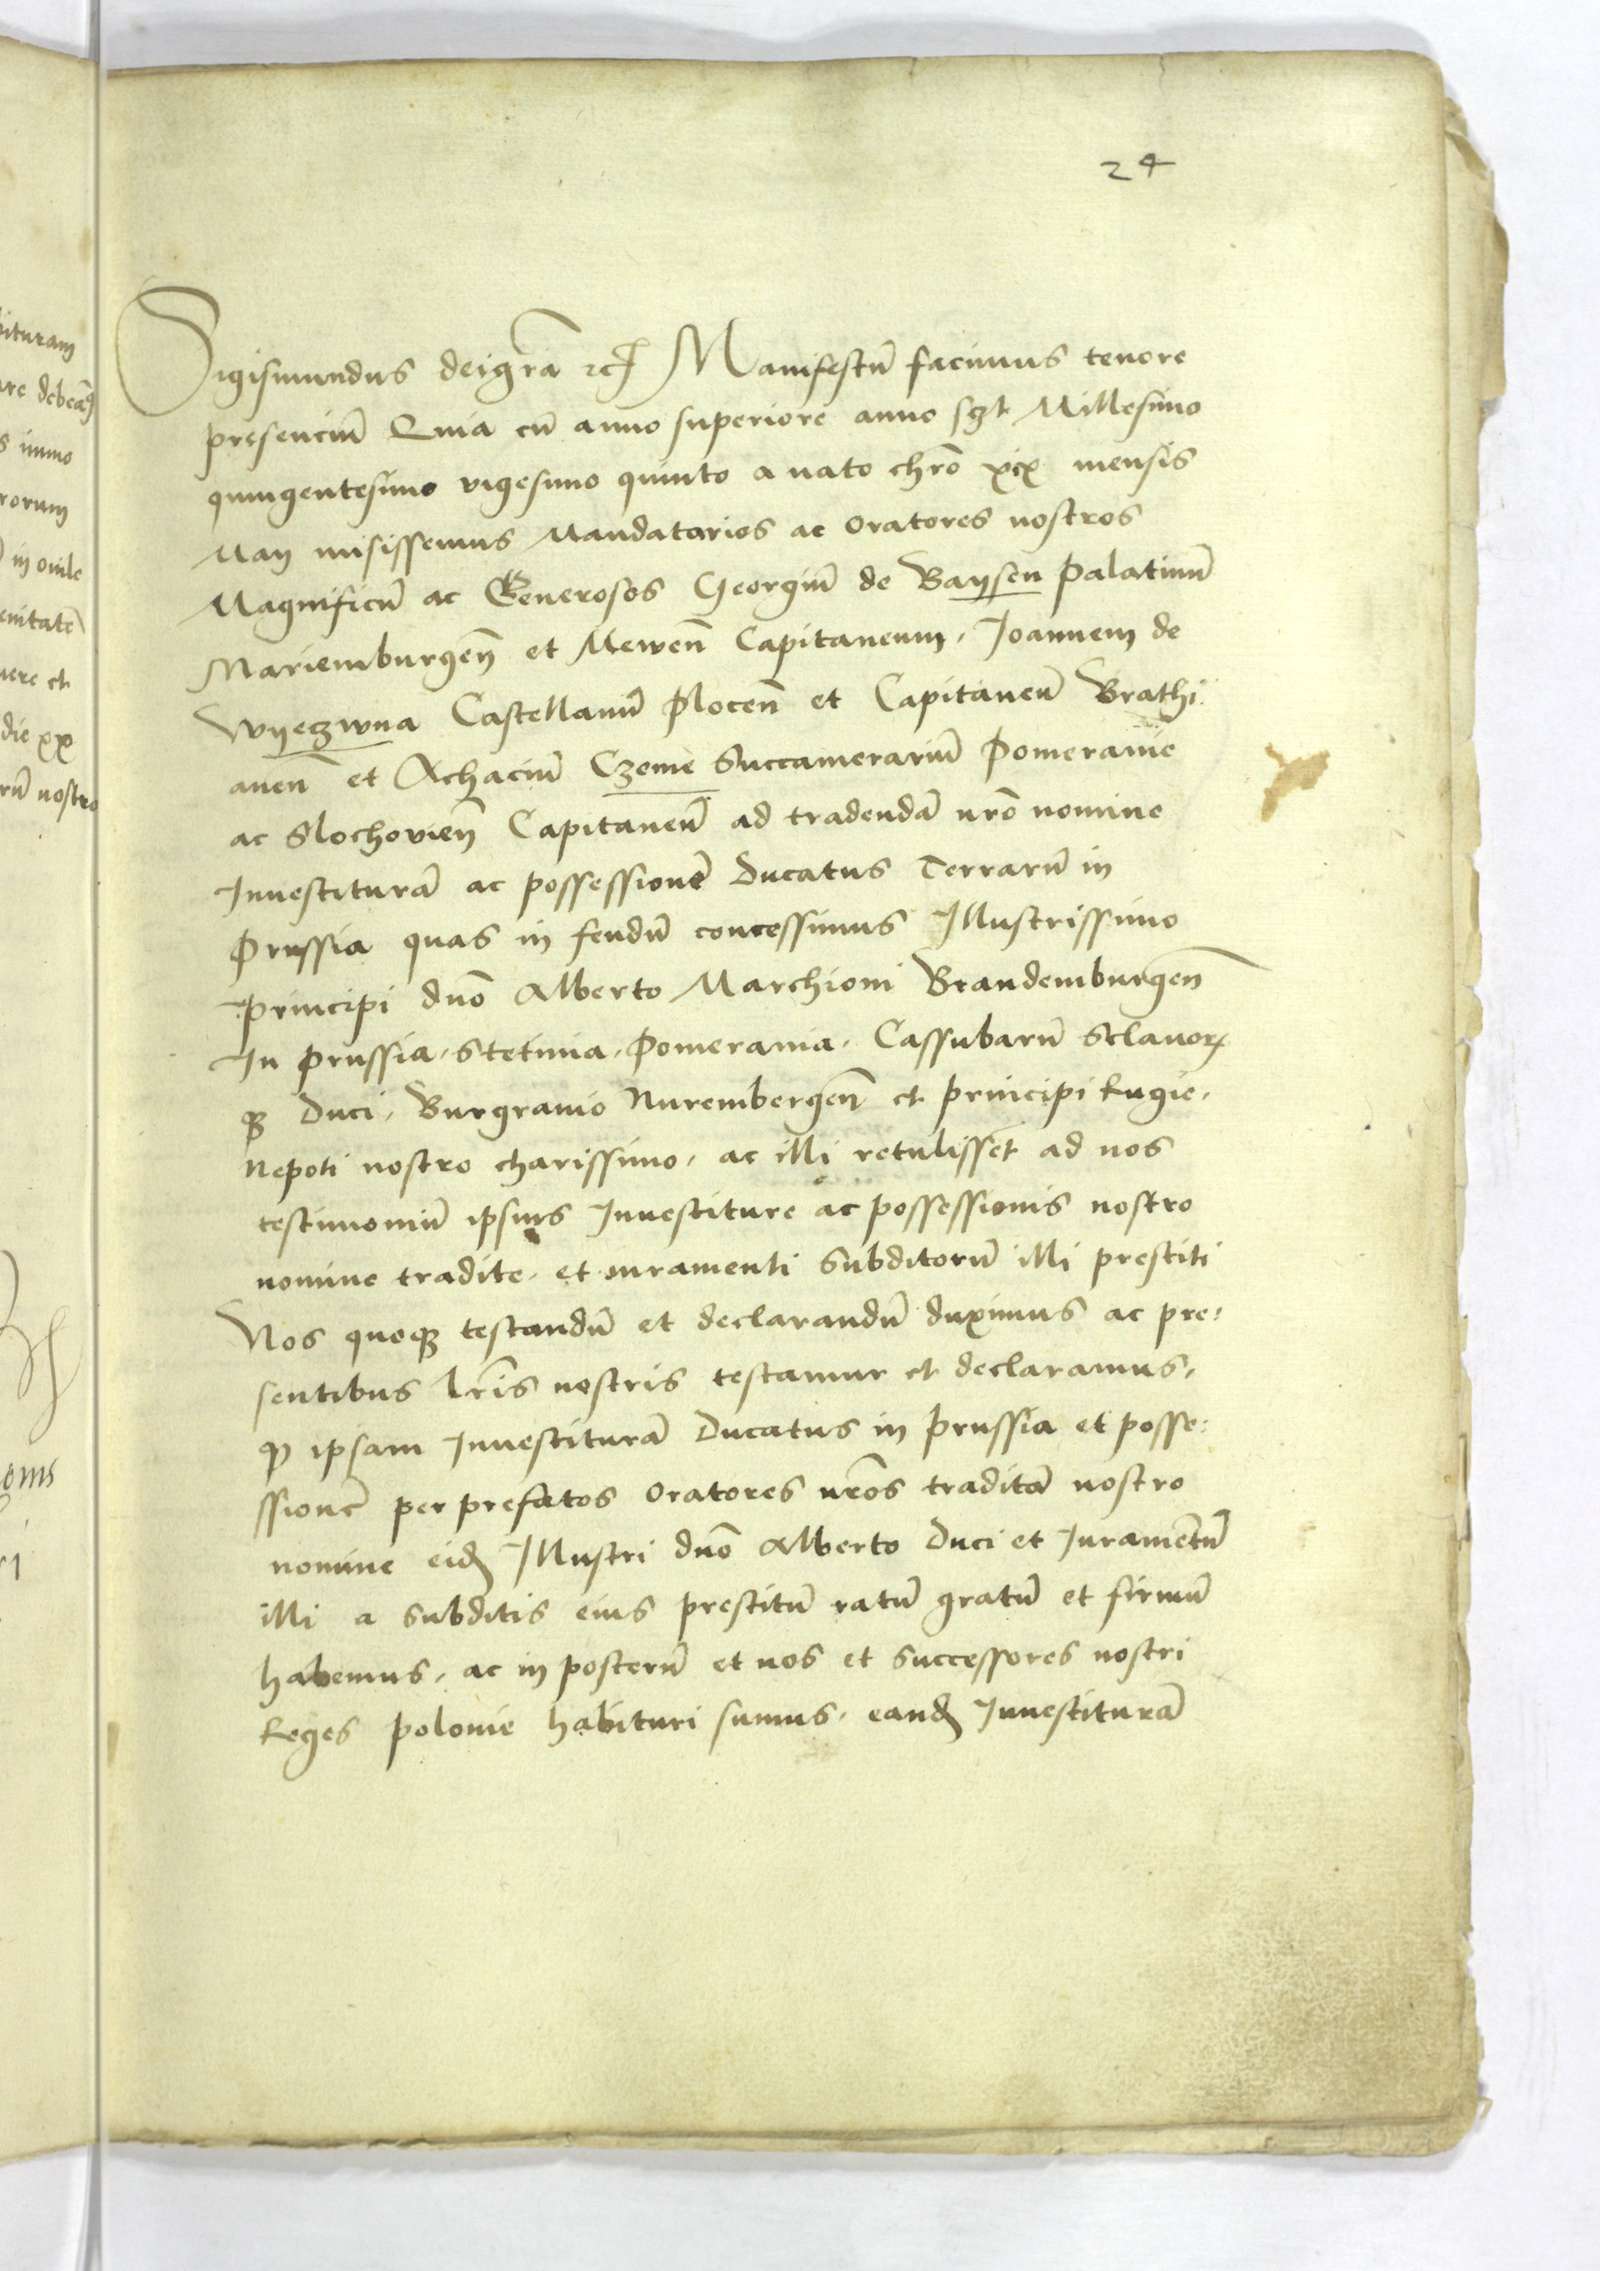 24
Sigismundus dei gra̅ zc̅ Manifestu̅ facimus tenore
presenciu̅ Quia cu̅ anno superiore anno sʒlt Millesimo
quingentesimo vigesimo quinto a nato chr̅o xix mensis
Maij misissemus Mandatarios ac Oratores nostros
Magnificu̅ ac Generosos Georgiu̅ de Baysen Palatinu̅
Mariemburgen̅ et Mewen̅ Capitaneum, Joannem de
Wyeczwna Castellanu̅ Plocen̅ et Capitaneu̅ Brathi
anen̅ et Achaciu̅ Czeme Succamerariu̅ Pomeranie
ac Slochovien̅ Capitaneu̅ ad tradenda̅ nr̅o nomine
Investitura̅ ac possessione̅ Ducatus Terraru̅ in
Prussia quas in feudu̅ concessimus Illustrissimo
Principi dn̅o Alberto Marchioni Brandemburgen̅
In Prussia, Stetinia, Pomerania, Cassubaru̅ Sclavorꝝ
qꝫ Duci, Burgravio Nurembergen̅ et principi Rugie,
Nepoti nostro charissimo, ac illi retulisse̅t ad nos
testimoniu̅ ipsius Investiture ac possessionis nostro
nomine tradite, et iuramenti subditoru̅ illi prestiti
Nos quoqꝫ testandu̅ et declarandu̅ duximus ac pre:
sentibus lr̅is nostris testamur et declaramus,
ꝙ ipsam Investitura̅ Ducatus in Prussia et posse:
ssione̅ per prefatos Oratores nr̅os tradita̅ nostro
nomine eidꝫ Illustri dn̅o Alberto Duci et Jurame̅tu̅
illi a subditis eius prestitu̅ ratu̅ gratu̅ et firmu̅
habemus, ac in posteru̅ et nos et successores nostri
Reges polonie habituri sumus, eandꝫ Investitura̅